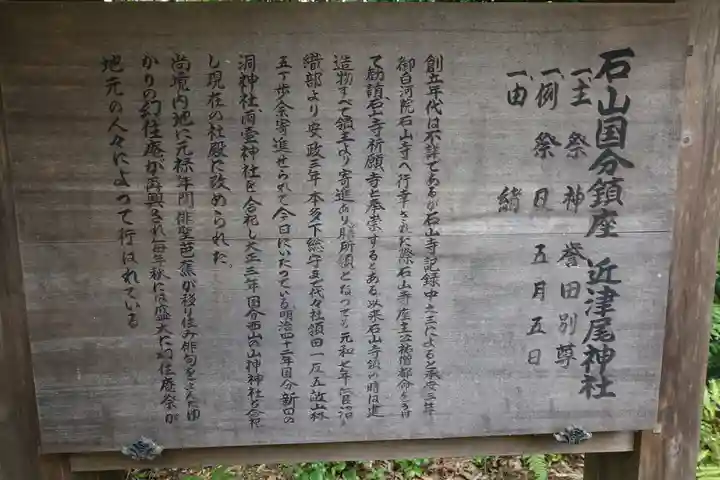 石山国分鎮座 近津尾神社
一、主祭神 誉田別尊
一、例祭日 五月五日
一、由緒
創立年代は不詳であるが石山寺記録中之三によると承安三年
御白河院石山寺へ行幸された際石山寺座主公祐僧都命をうけ
て勧請石山寺祈願寺と奉崇するとある以来石山寺領の時は進
造物すべて領主より寄進あり膳所領となつても元和七年菅沼
織部より安政三年本多下総守まで代々社領田一反五畝山林
五丁歩余寄進せられて今日にいたつている明治四十二年国分新田の
洞神社、両壺神社を合祀し大正三年国分西山の山神神社を合祀
し現在の社殿に改められた。
尚境内地に元禄年間俳聖芭蕉が移り住み俳句をよんだゆ
かりの幻住庵が再興され毎年秋には盛大に幻住庵祭が
地元の人々によつて行はれている